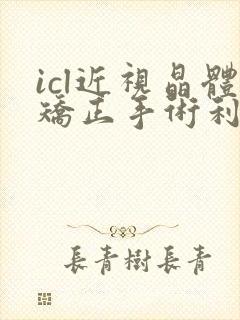 icl近視晶體
矯正手術利
長青樹長青